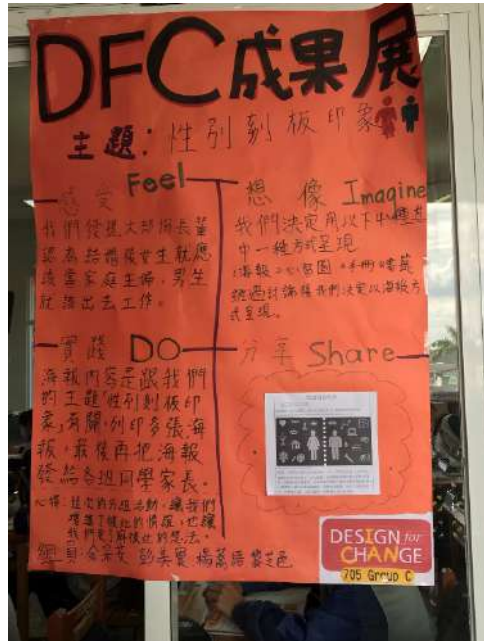 DFC成果展
主題：性別刻板印象
感受 Feel
我們發現大部份長輩
認為結婚後女生就應
該當家庭主婦，男生
就該出去工作。
想像 Imagine
我們決定用以下4種其
中一種方式呈現
1海報
經過討論後我們決定以海報方
式呈現。
實踐 DO
海報內容是跟我們
的主題「性別刻板印
象」有關，列印多張海
報，最後再把海報
發給各班同學家長。
心得：這次的分組活動，讓我們
增進了彼此的情誼，也讓
我們更了解彼此的想法。
組員：
分享 Share
DESIGN for
CHANGE
705 Group C